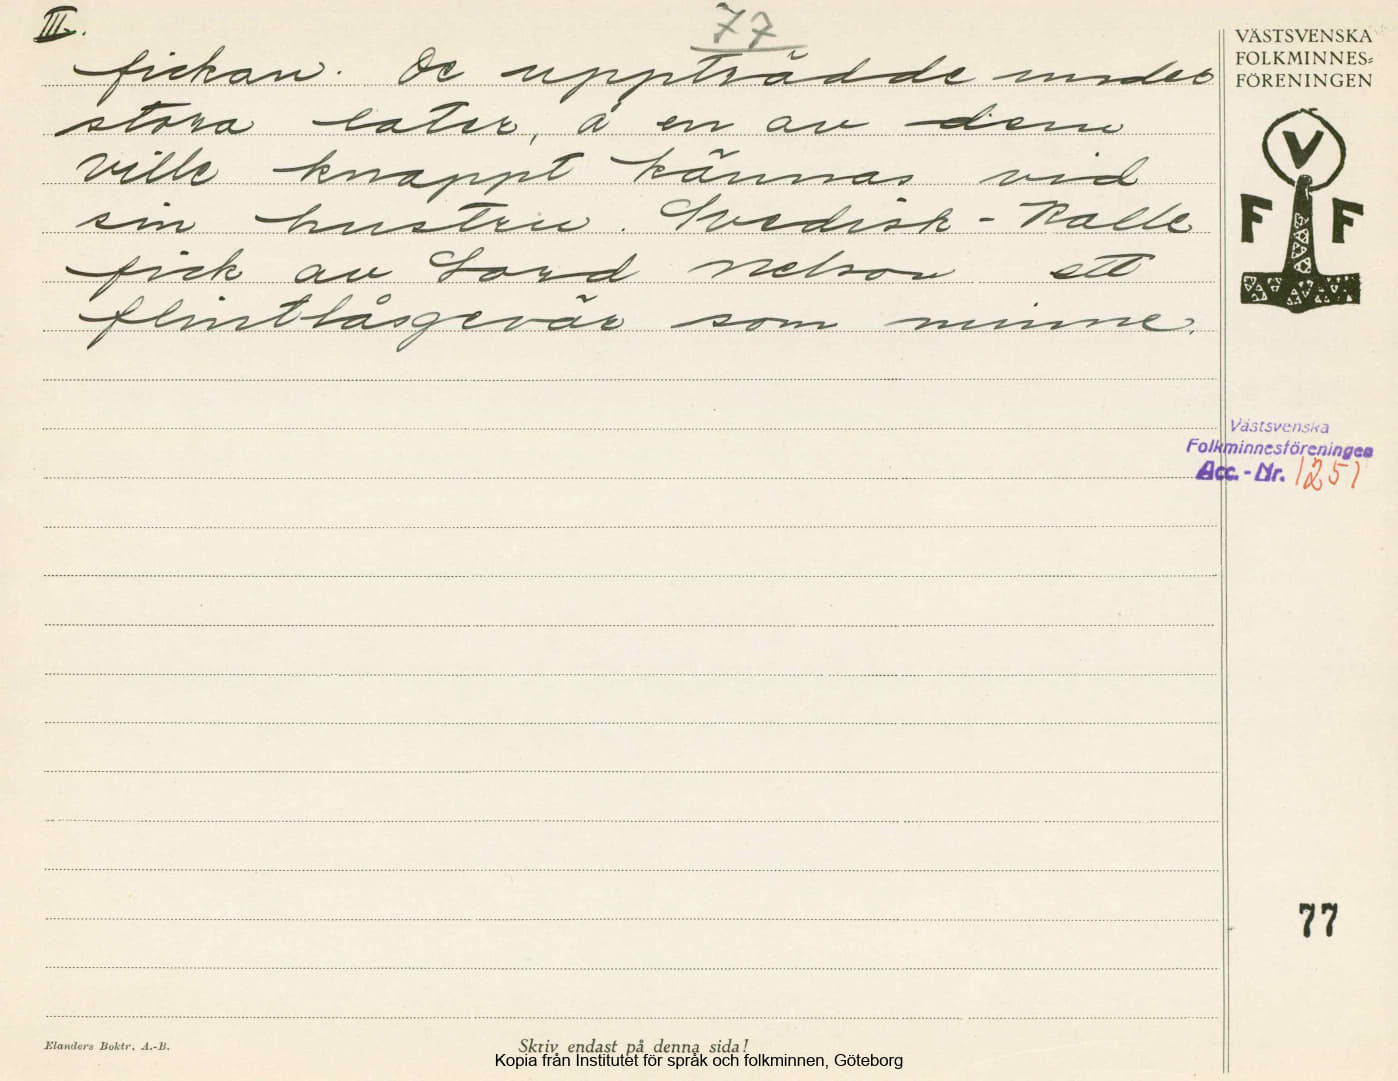 III.
77
fickan. De uppträdde under
stora later, å en av dem
ville knappt kännas vid
sin hustru. Svedisk-Kalle
fick av Lord Nelson ett
flintlåsgevär som minne.
VÄSTSVENSKA
FOLKMINNES=
FÖRENINGEN
V
F F
Västsvenska
Folkminnesföreningen
Acc. - Nr. 1251
77
Elanders Boktr. A.-B.
Skriv endast på denna sida!
Kopia från Institutet för språk och folkminnen, Göteborg